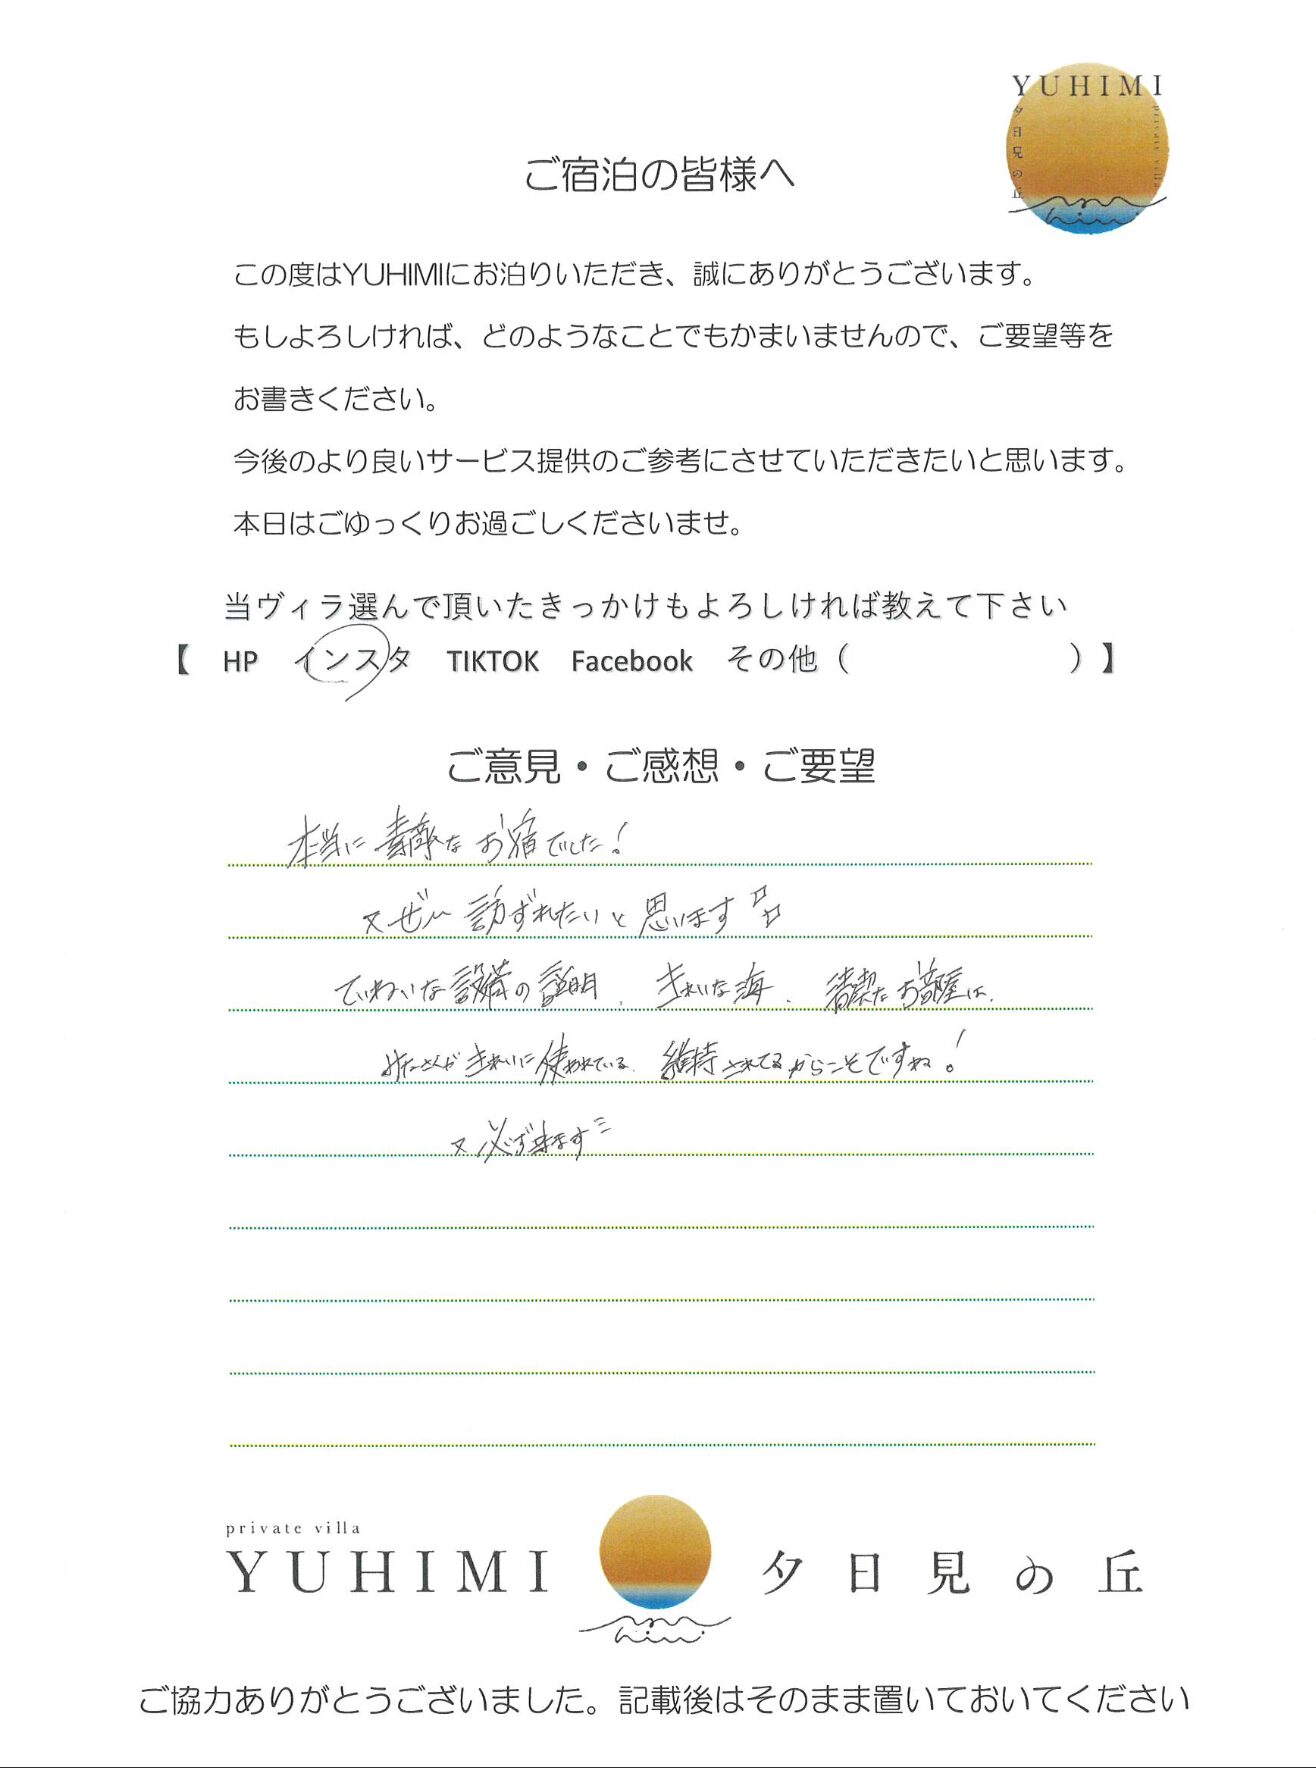 YUHIMI
夕日見の丘
private villa
ご宿泊の皆様へ
この度はYUHIMIにお泊りいただき、誠にありがとうございます。
もしよろしければ、どのようなことでもかまいませんので、ご要望等を
お書きください。
今後のより良いサービス提供のご参考にさせていただきたいと思います。
本日はごゆっくりお過ごしくださいませ。
当ヴィラ選んで頂いたきっかけもよろしければ教えて下さい
【 HP インスタ TIKTOK Facebook その他（ ）】
ご意見・ご感想・ご要望
本当に素敵なお宿でした！
又ぜひ訪ずれたいと思います
ていねいな設備の説明、きれいな海、清潔なお部屋は、
みなさんがきれいに使われている、維持されてるからこそですね！
又必ず来ます
private villa
YUHIMI 夕日見の丘
ご協力ありがとうございました。記載後はそのまま置いておいてください